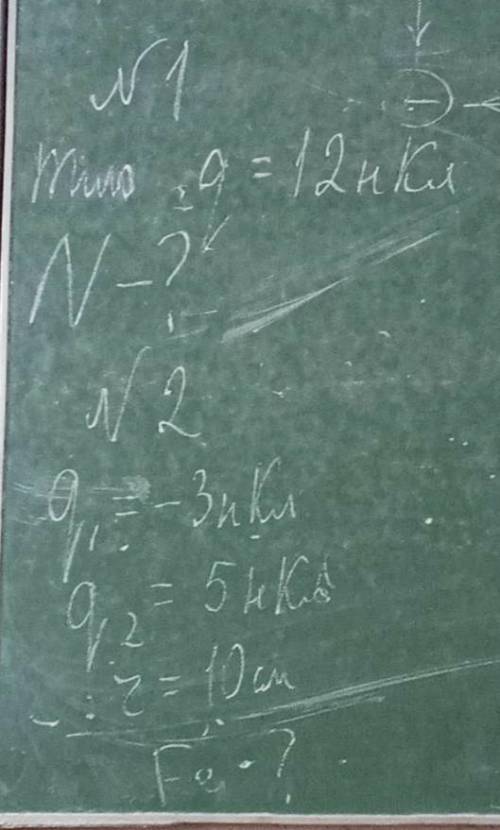 N1
Тело q = 12 нКл
N - ?
N2
q₁ = -3нКл
q₂ = 5нКл
r = 10см
Fe - ?